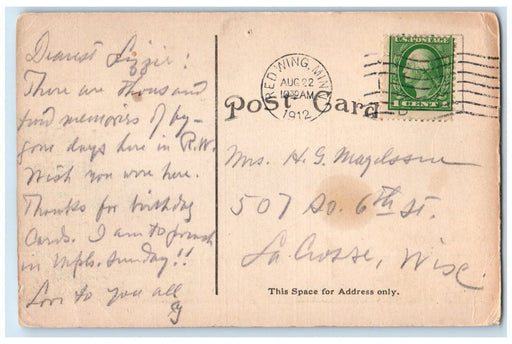 Dearest Lizzie!
There are thousand
fond memories of by-
gone days here in R.W.
Wish you were here.
Thanks for birthday
Cards. I am to preach
in Mpls. Sunday!!
Love to you all
RED WING, MINN.
AUG 22
10 AM
1912
U.S. POSTAGE
1 CENT 1
Post Card
Mrs. H. G. Magelssen
507 So. 6th St.
La Crosse, Wisc.
This Space for Address only.